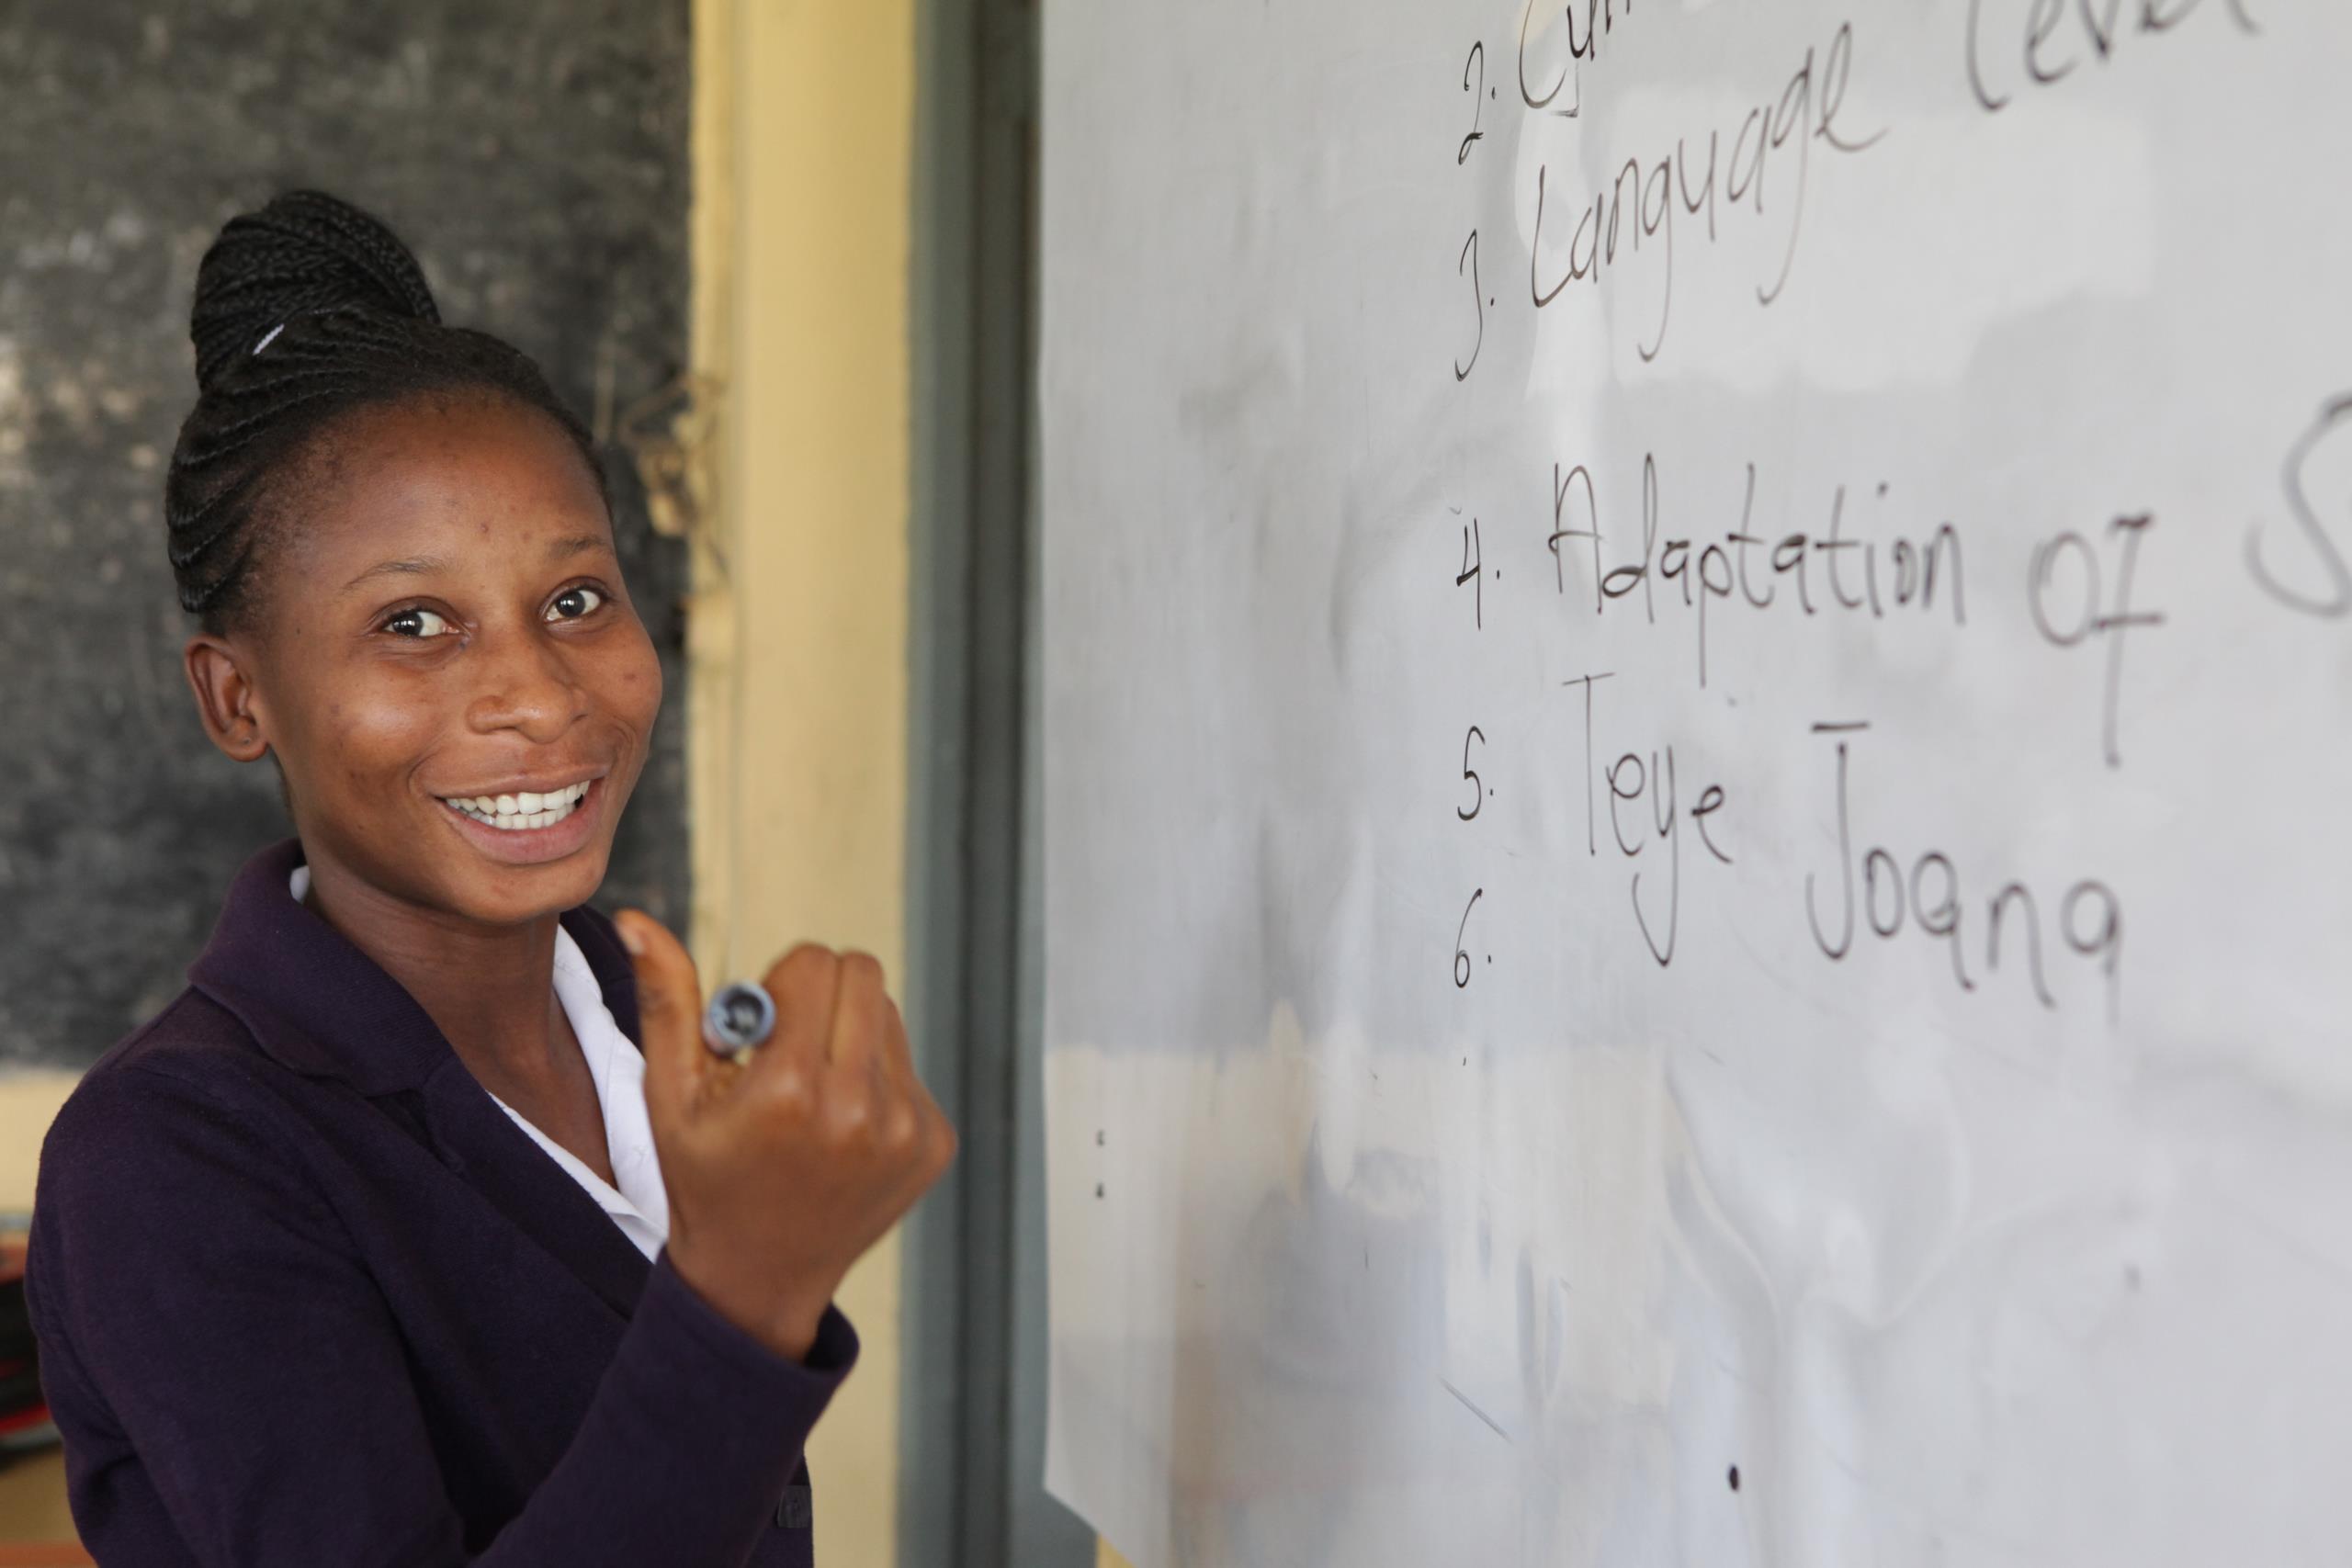 2.
3. Language level
4. Adaptation of
5. Teye Joana
6.